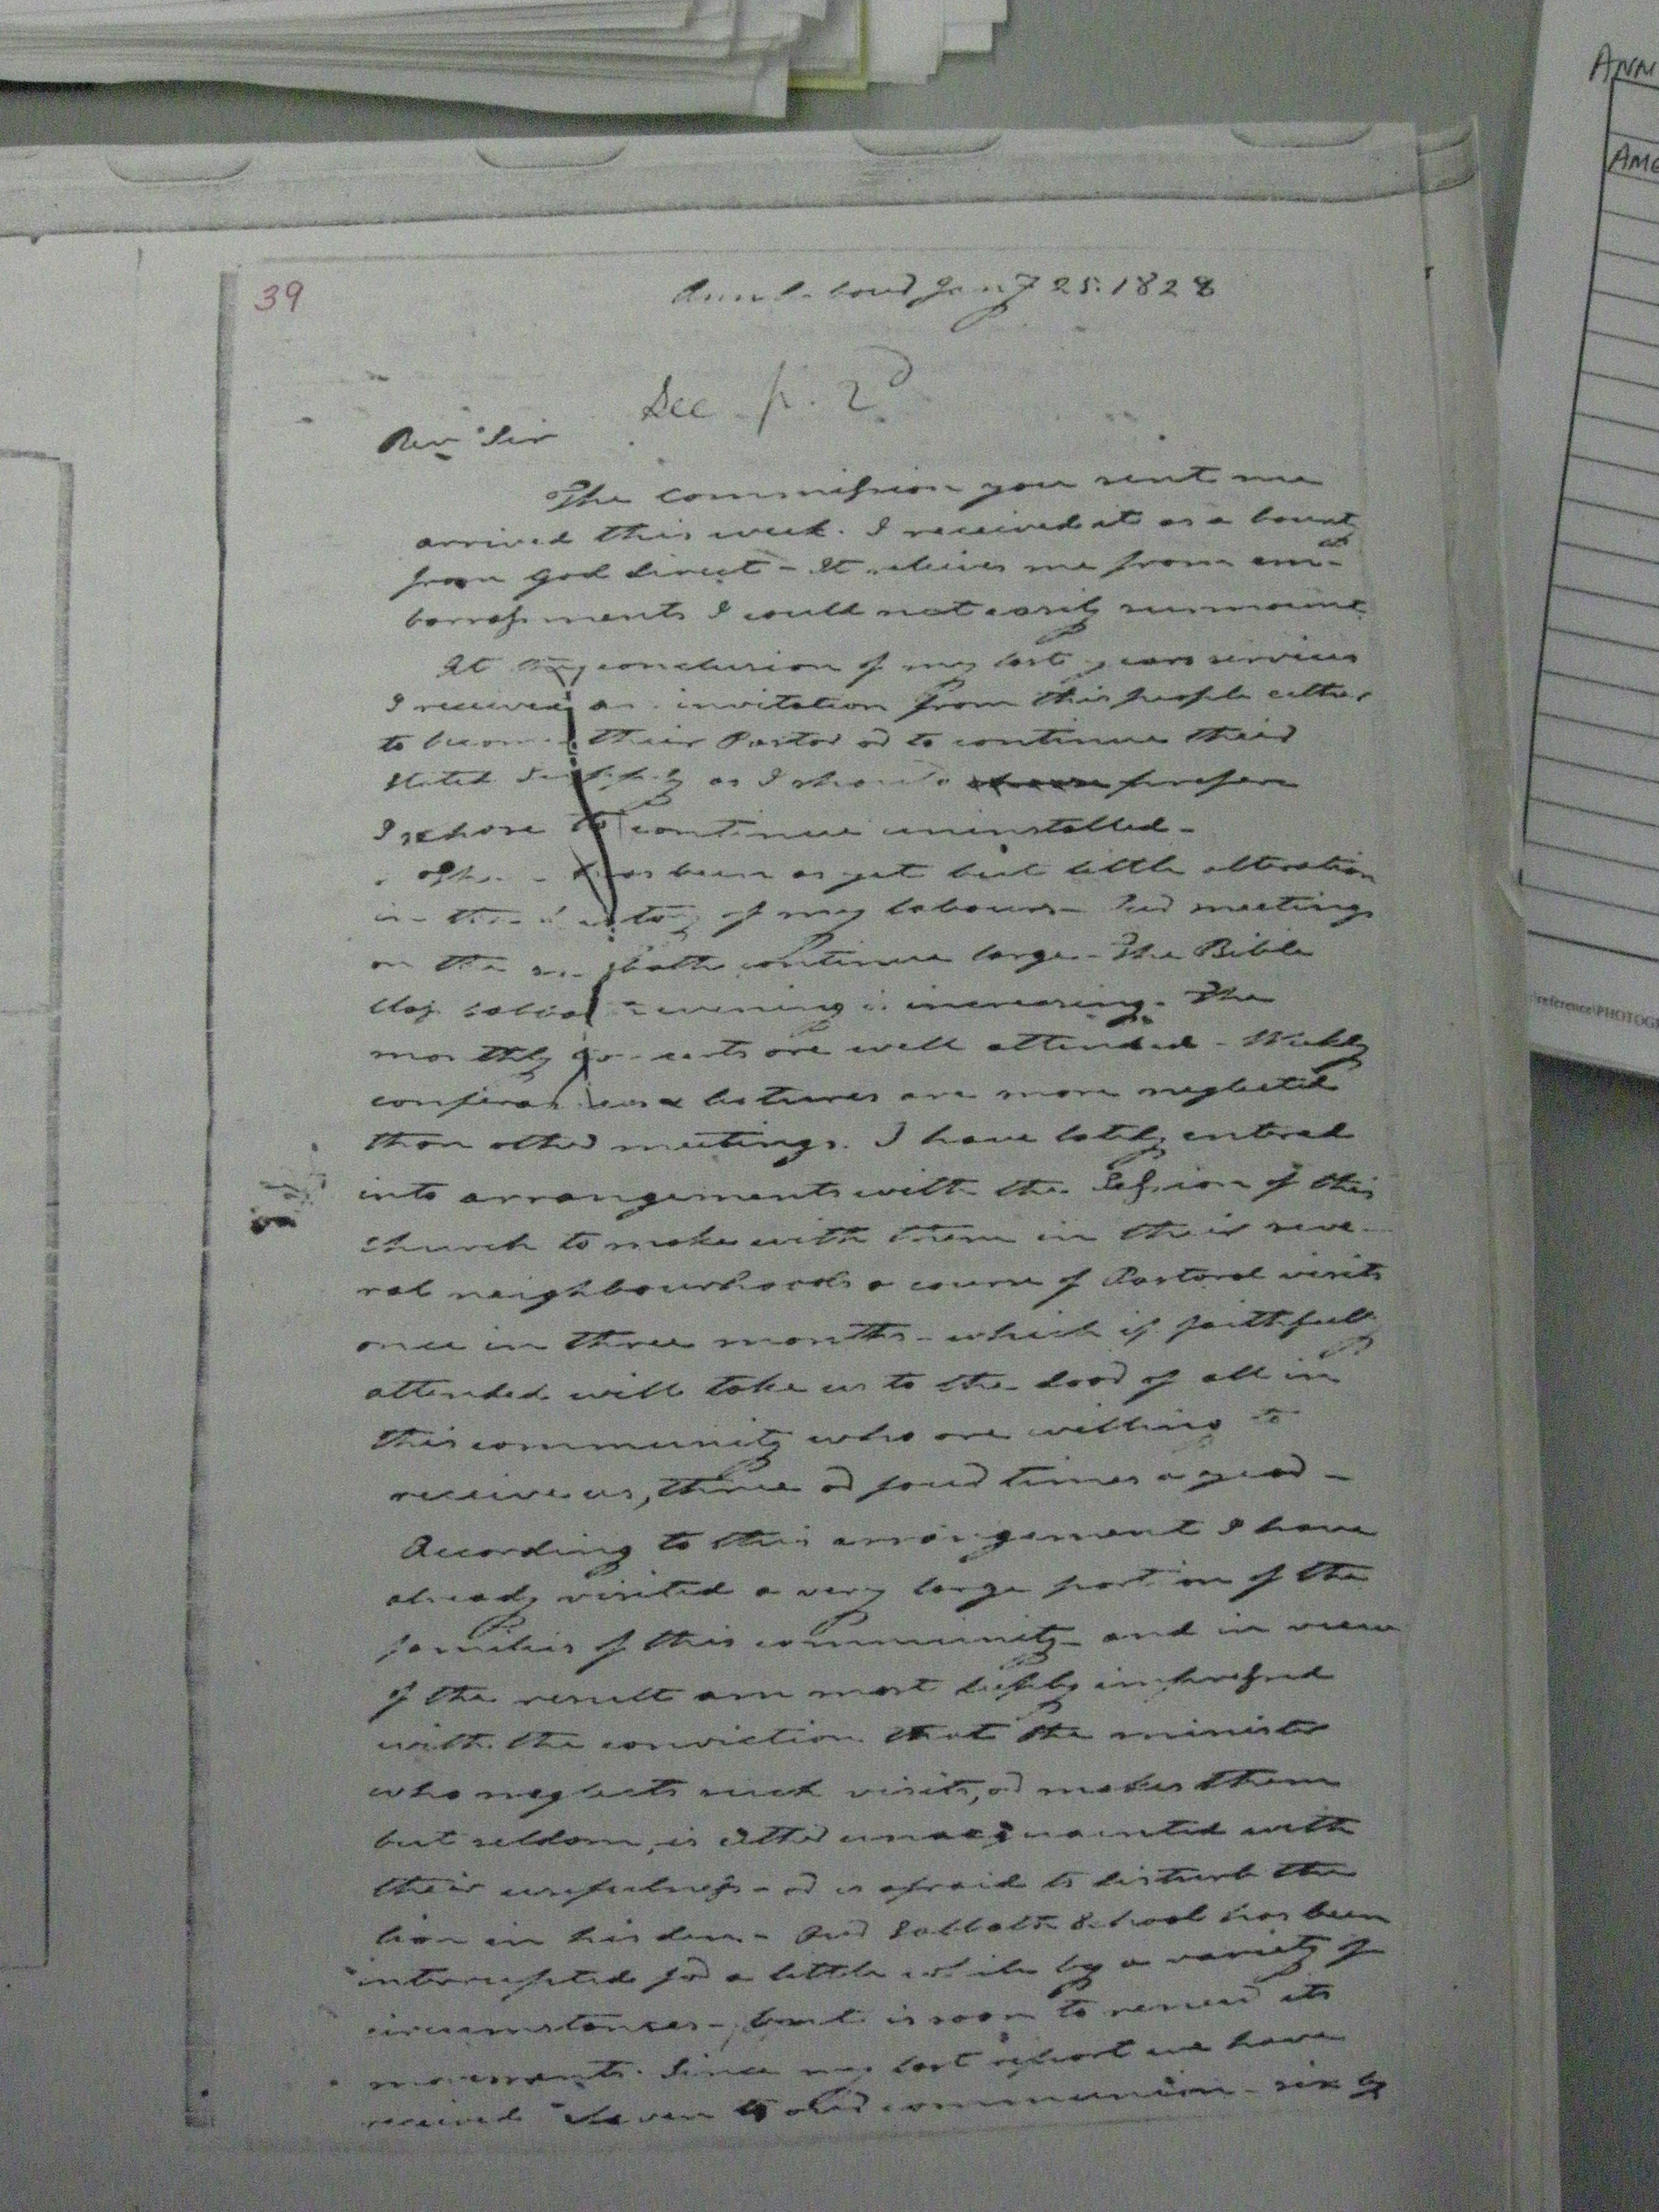 ANN
AME
reference\PHOTOG
39
Jany 25. 1828
See p. 2d
Revd Sir
The commission you sent me
arrived this week. I received it as a bounty
from God direct - It relieves me from em-
barrassments I could not easily surmount
At the conclusion of my last years services
I received an invitation from this people either
to become their Pastor or to continue their
stated supply as I should prefer
I chose to continue uninstalled -
There has been as yet but little alteration
in the history of my labours - Our meetings
on the sabbath continue large - The Bible
class sabbath evening is increasing. The
monthly concerts are well attended - Weekly
conferences & lectures are more neglected
than other meetings. I have lately entered
into arrangements with the Session of this
church to make with them in their seve-
ral neighbourhoods a course of Pastoral visits
once in three months - which if faithfully
attended will take us to the door of all in
this community who are willing to
receive us, three or four times a year -
According to this arrangement I have
already visited a very large portion of the
families of this community - and in view
of the result am most deeply impressed
with the conviction that the minister
who neglects such visits, or makes them
but seldom, is either unacquainted with
their usefulness - or is afraid to disturb the
lion in his den - Our Sabbath School has been
interrupted for a little while by a variety of
circumstances - but is soon to renew its
movements. Since my last report we have
received eleven to our communion - six by